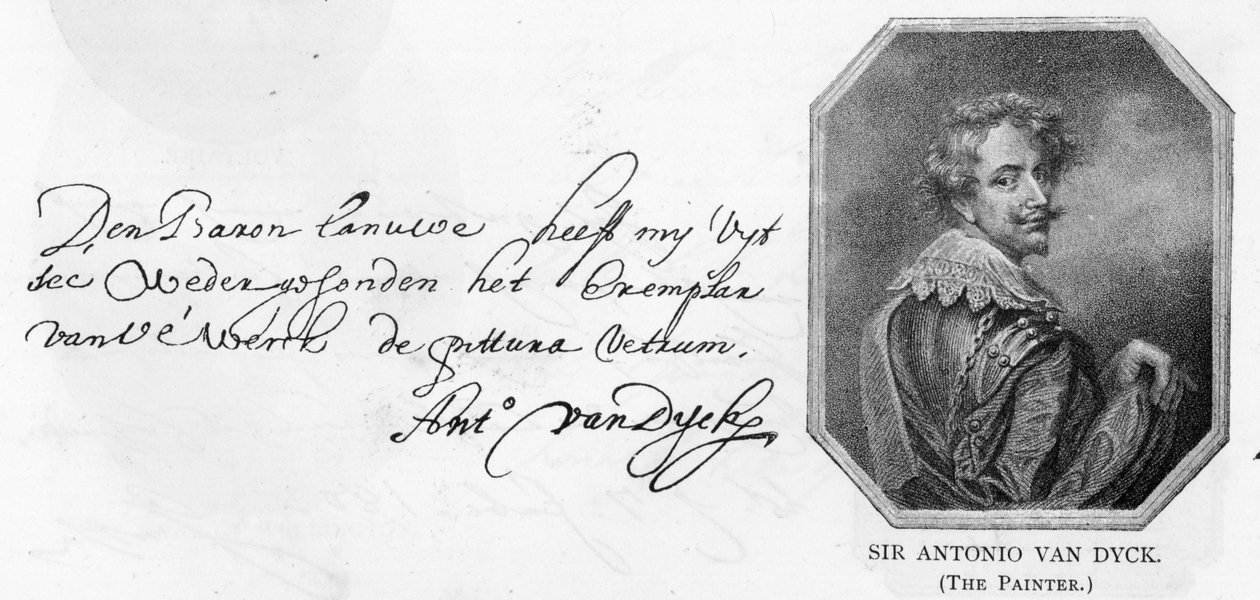 Den Baron Canuwe heeft mij Vyt
see Weder gesonden het Exemplar
van Ué Werck de pittura Vetrum.
Ant.o van Dyck
SIR ANTONIO VAN DYCK.
(THE PAINTER.)